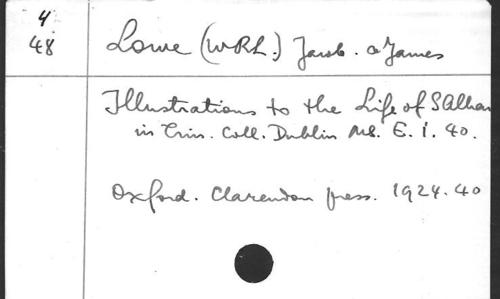 4
48
Lowe (WRL.) Jacob. a James
Illustrations to the Life of S Alban
in Trin. Coll. Dublin MS. E. i. 40.
Oxford. Clarendon press. 1924. 40